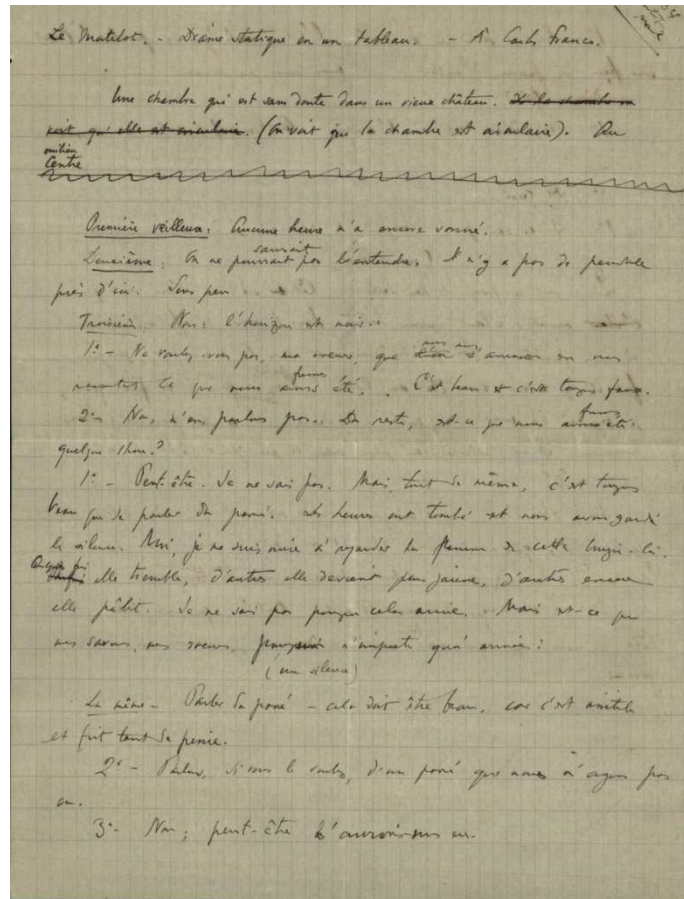 Le Matelot. – Drame statique en un tableau. – A Carlos Franco.
Une chambre qui est sans doute dans un vieux château. De la chambre on
voit qu'elle est circulaire. (On voit que la chambre est circulaire). Au
milieu
Centre
Première veilleuse: Aucune heure n'a encore sonné.
saurait
Deuxième: On ne pourrait pas l'entendre. Il n'y a pas de pendule
près d'ici. Sous peu
Troisième. Non: l'horizon est noir.
1e – Ne voulez vous pas, ma soeur, que nous nous s'amuser en nous
fûmes
racontant ce que nous avons été. C'est beau et c'est toujs faux.
fûmes
2e – Non, n'en parlons pas. Du reste, est-ce que nous avons été
quelque chose?
1e – Peut-être. Je ne sais pas. Mais, tout de même, c'est toujs
beau que de parler du passé. Les heures ont tombé et nous avons gardé
le silence. Moi, je me suis mise à regarder la flamme de cette bougie-là.
Quelque foi
elle tremble, d'autres elle devient plus jaune, d'autres encore
elle pâlit. Je ne sais pas pourquoi cela arrive. Mais est-ce que
nous savons, mes soeurs, pourquoi n'importe quoi arrive?
(un silence)
La même – Parler du passé – cela doit être beau, car c'est inutile
et fait tant de peine.
2e – Parlons, si vous le voulez, d'un passé que nous n'ayons pas
eu.
3e – Non; peut-être l'aurions-nous eu.